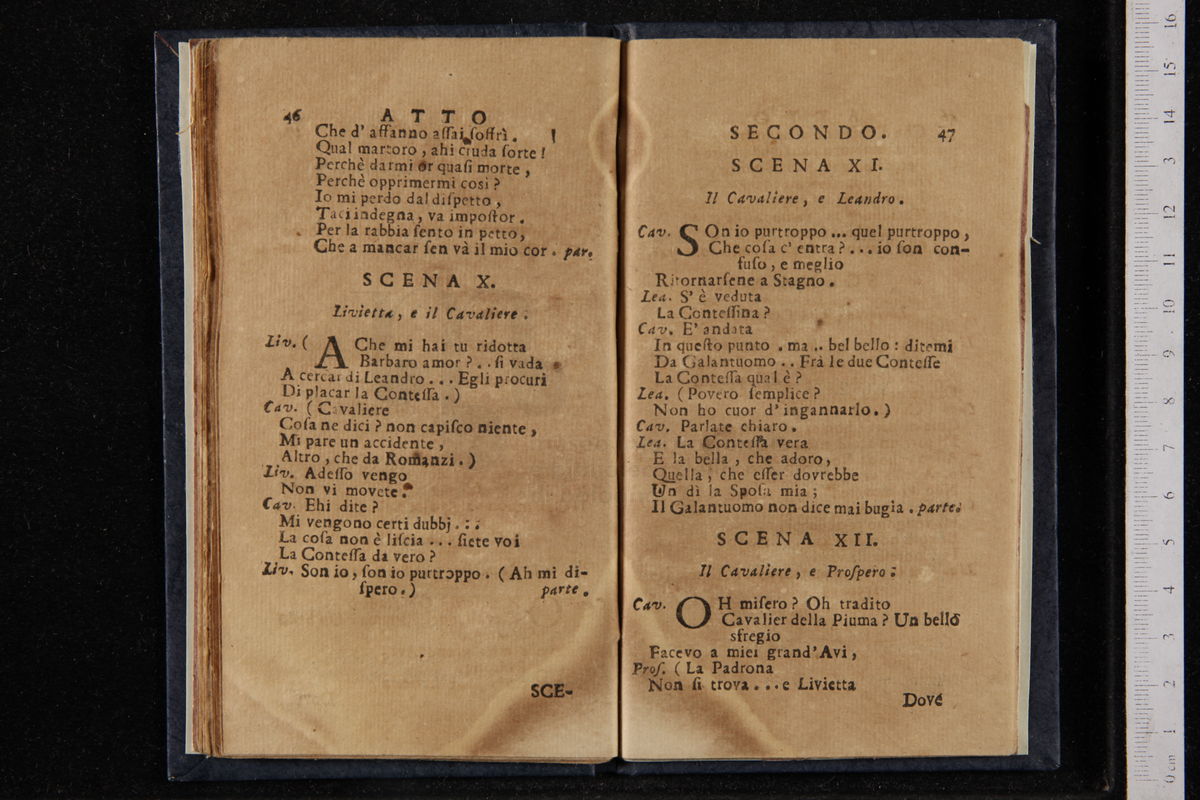 46 ATTO
Che d' affanno assai soffrì.
Qual martoro, ahi cruda sorte!
Perchè darmi or quasi morte,
Perchè opprimermi così?
Io mi perdo dal dispetto,
Taci indegna, va impostor.
Per la rabbia sento in petto,
Che a mancar sen và il mio cor. par.
SCENA X.
Livietta, e il Cavaliere.
Liv. ( A Che mi hai tu ridotta
Barbaro amor? .. si vada
A cercar di Leandro ... Egli procuri
Di placar la Contessa.)
Cav. (Cavaliere
Cosa ne dici? non capisco niente,
Mi pare un accidente,
Altro, che da Romanzi.)
Liv. Adesso vengo
Non vi movete.
Cav. Ehi dite?
Mi vengono certi dubbj. : :
La cosa non è liscia ... siete voi
La Contessa da vero?
Liv. Son io, son io purtroppo. (Ah mi di-
spero.) parte.
SCE-
SECONDO. 47
SCENA XI.
Il Cavaliere, e Leandro.
Cav. SOn io purtroppo ... quel purtroppo,
Che cosa c' entra? ... io son con-
fuso, e meglio
Ritornarsene a Stagno.
Lea. S' è veduta
La Contessina?
Cav. E' andata
In questo punto . ma .. bel bello: ditemi
Da Galantuomo .. Frà le due Contesse
La Contessa qual è?
Lea. (Povero semplice?
Non ho cuor d' ingannarlo.)
Cav. Parlate chiaro.
Lea. La Contessa vera
E la bella, che adoro,
Quella, che esser dovrebbe
Un dì la Sposa mia;
Il Galantuomo non dice mai bugia. parte.
SCENA XII.
Il Cavaliere, e Prospero.
Cav. OH misero? Oh tradito
Cavalier della Piuma? Un bello
sfregio
Facevo a miei grand' Avi,
Pros. (La Padrona
Non si trova ... e Livietta
Dove
0 cm 1 2 3 4 5 6 7 8 9 10 11 12 13 14 15 16